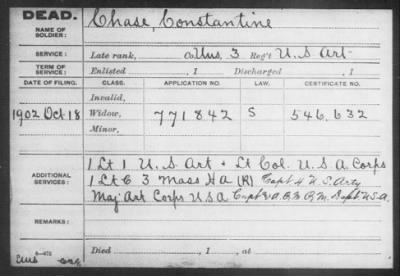 DEAD.
NAME OF SOLDIER: Chase, Constantine
SERVICE: Late rank, Co. Uns, 3 Reg't U.S Art
TERM OF SERVICE: Enlisted , 1 Discharged , 1
DATE OF FILING. CLASS. APPLICATION NO. LAW. CERTIFICATE NO.
Invalid,
1902 Oct 18 Widow, 771842 S 546,632
Minor,
ADDITIONAL SERVICES: 1 Lt 1 U.S Art + Lt Col. U.S A Corps
1 Lt C 3 Mass Ha (R) Capt H U.S. Arty
Maj Art Corps U S A Capt Dept U.S.A.
REMARKS:
Died , 1 , at